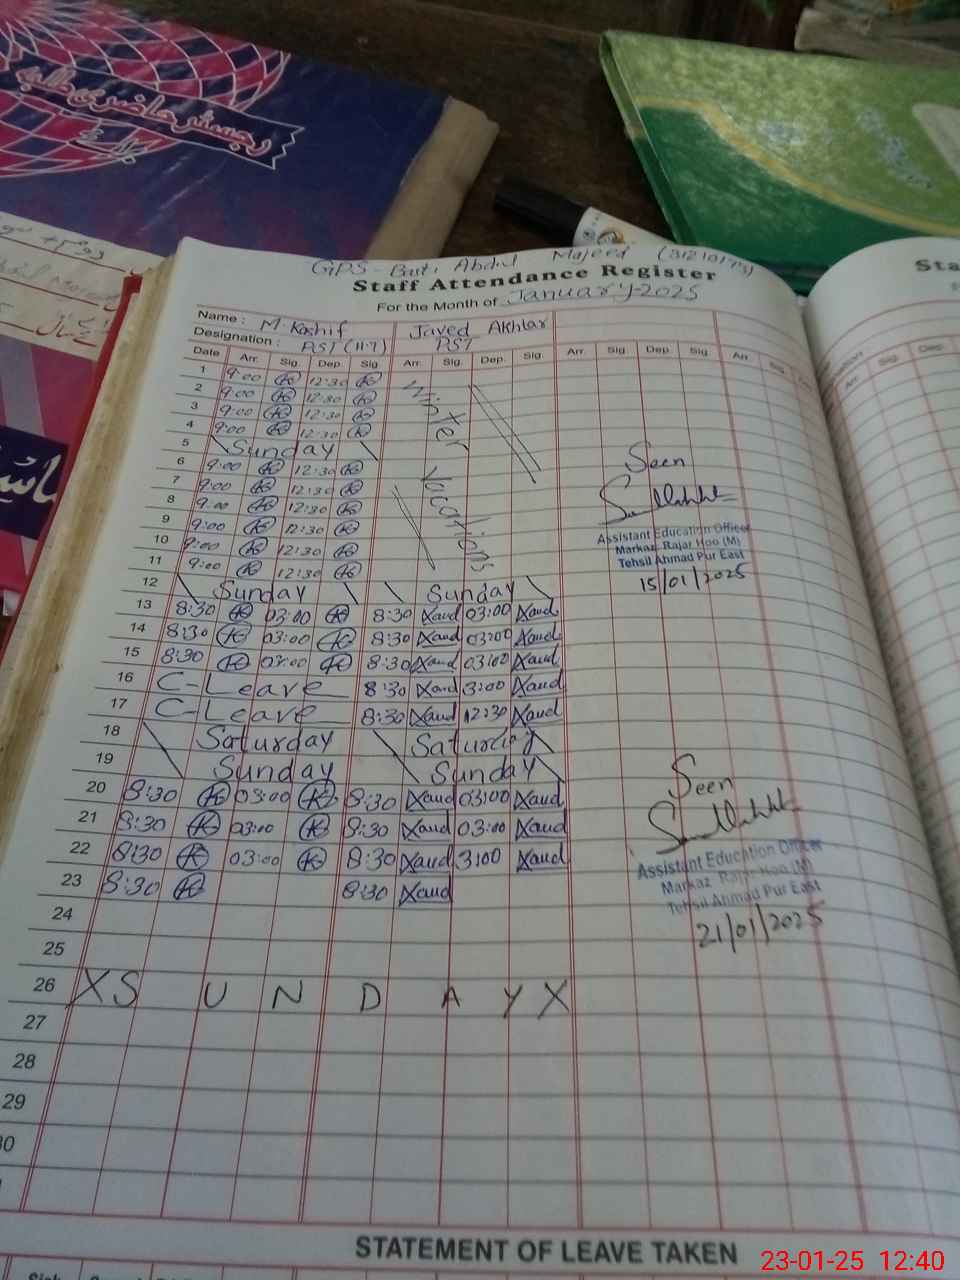 رجسٹر حاضری طلبہ
GPS - Basti Abdul Majeed (31210173)
Staff Attendance Register
Sta
For the Month of January-2025
Name : M. Kashif Javed Akhtar
Designation : PST (H.T) PST
Date Arr. Sig. Dep. Sig. Arr. Sig. Dep. Sig. Arr. Sig. Dep. Sig. Arr. Sig.
Arr. Sig. Dep.
1 9:00 K 12:30 K
2 9:00 K 12:30 K
3 9:00 K 12:30 K
4 9:00 K 12:30 K
Winter Vacations
5 Sunday
6 9:00 K 12:30 K
7 9:00 K 12:30 K
8 9:00 K 12:30 K
9 9:00 K 12:30 K
10 9:00 K 12:30 K
11 9:00 K 12:30 K
Seen
Assistant Education Officer
Markaz Rajar Hoo (M)
Tehsil Ahmad Pur East
15/01/2025
12 Sunday Sunday
13 8:30 K 03:00 K 8:30 Xaud 03:00 Xaud
14 8:30 K 03:00 K 8:30 Xaud 03:00 Xaud
15 8:30 K 03:00 K 8:30 Xaud 03:00 Xaud
16 C-Leave 8:30 Xaud 3:00 Xaud
17 C-Leave 8:30 Xaud 12:30 Xaud
18 Saturday Saturday
19 Sunday Sunday
20 8:30 K 03:00 K 8:30 Xaud 03:00 Xaud
21 8:30 K 03:00 K 8:30 Xaud 03:00 Xaud
22 8:30 K 03:00 K 8:30 Xaud 3:00 Xaud
23 8:30 K 8:30 Xaud
Seen
Assistant Education Officer
Markaz Rajar Hoo (M)
Tehsil Ahmad Pur East
21/01/2025
24
25
26 X S U N D A Y X
27
28
29
30
STATEMENT OF LEAVE TAKEN
23-01-25 12:40